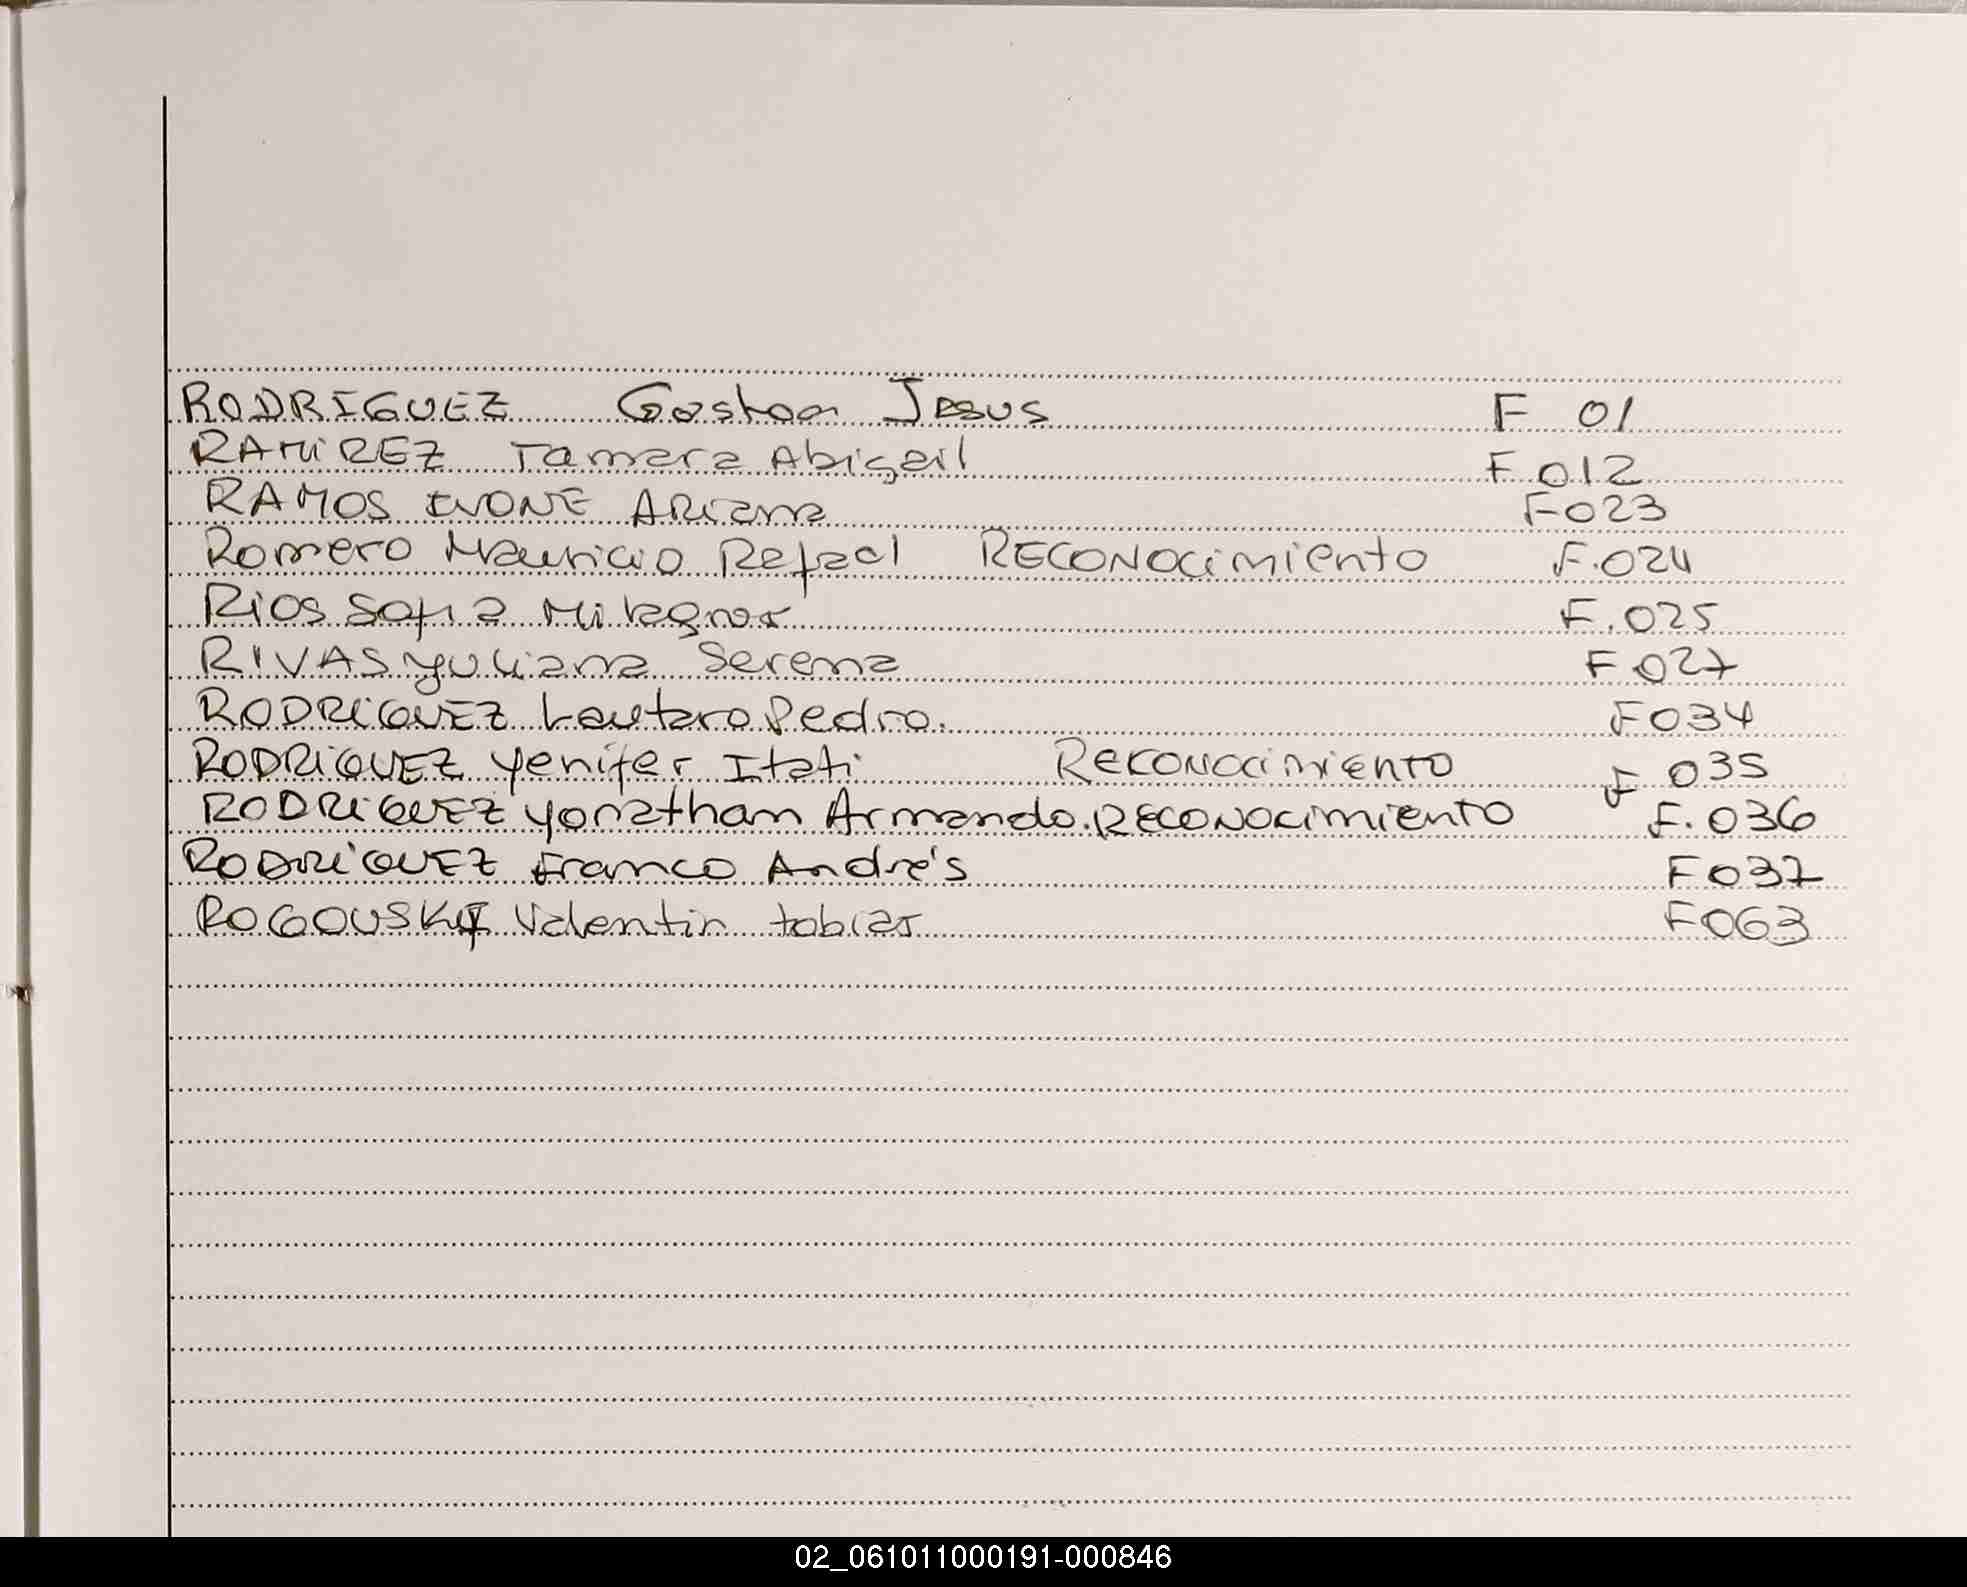 RODRIGUEZ Gaston Jesus F 01
RAMIREZ Tamara Abigail F 012
RAMOS IVONE ARiana F023
Romero Mauricio Rafael RECONOCimiento F.024
Rios Sofia Milagros F.025
RIVAS yuliana Serena F 027
RODRIGUEZ Lautaro Pedro. F034
RODRiGUEZ yenifer Itati Reconocimiento F 035
RODRiGUEZ yonatham Armando. RECONOCimiento F. 036
RODRiGUEZ Franco Andrés F037
ROGOUSKI Valentin tobias F063
02_061011000191-000846